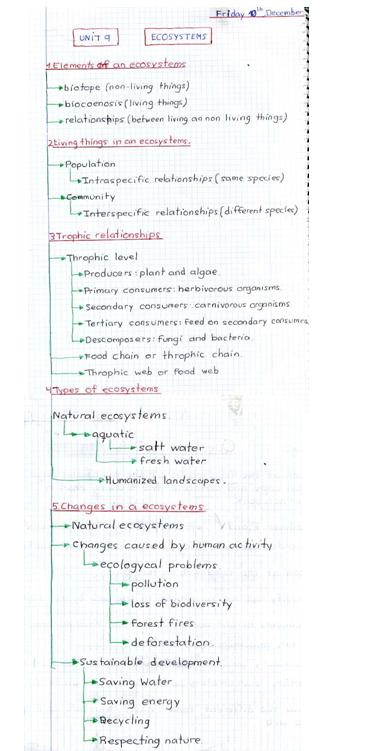 Friday 10th December
UNIT 9 ECOSYSTEMS
1.Elements of an ecosystems
biotope (non-living things)
biocoenosis (living things)
relationships (between living an non living things)
2.Living things in an ecosystems.
Population
Intraspecific relationships (same species)
Community
Interspecific relationships (different species)
3.Trophic relationships
Throphic level
Producers: plant and algae.
Primary consumers: herbivorous organisms.
Secondary consumers: carnivorous organisms
Tertiary consumers: feed on secondary consumers
Descomposers: fungi and bacteria.
Food chain or throphic chain.
Throphic web or food web
4.Types of ecosystems
Natural ecosystems.
aquatic
salt water
fresh water
Humanized landscapes.
5.Changes in a ecosystems.
Natural ecosystems
Changes caused by human activity
ecologycal problems
pollution
loss of biodiversity
forest fires
deforestation.
Sustainable development.
Saving Water
Saving energy
Recycling
Respecting nature.